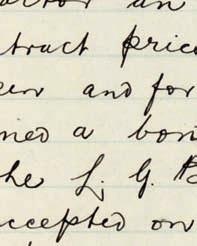 actor an
tract price
een and for
ned a bon
the L. G. B
ccepted on